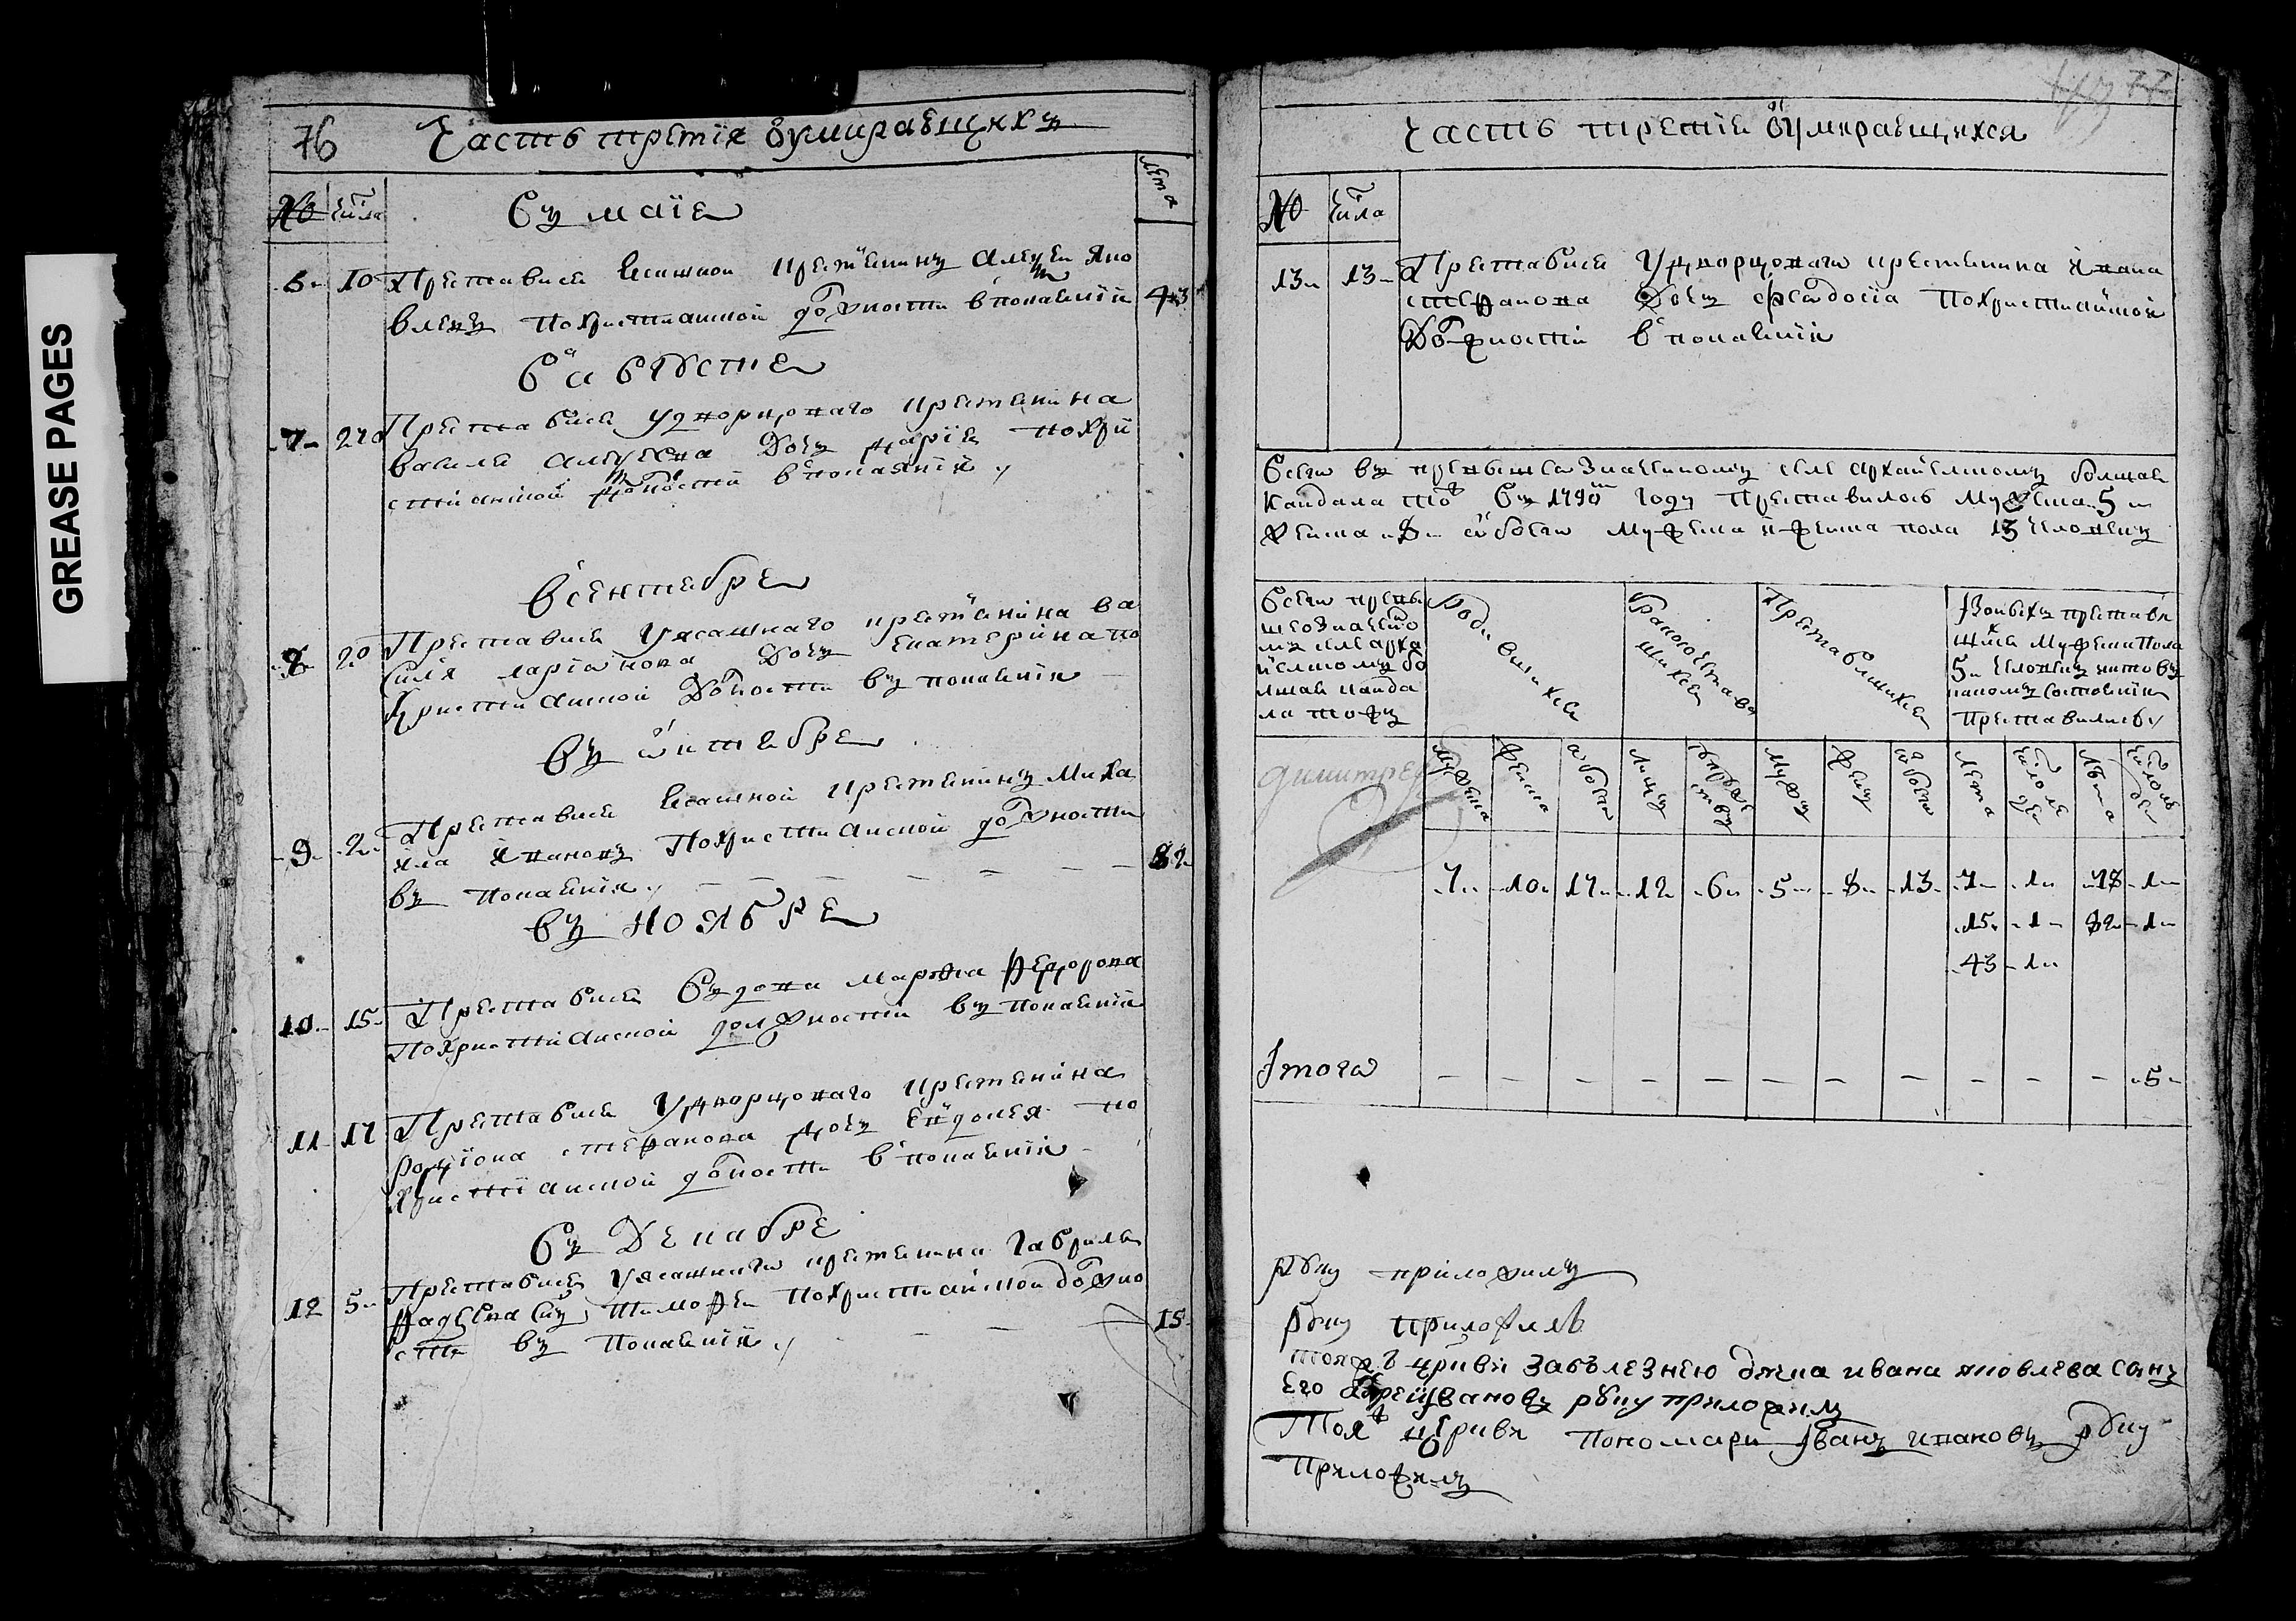 GREASE PAGES
76
Часть третїя ѡумирающихъ
№ числа лета
Въ маїе
6 10 Преставися ясашной крестянинъ Алеѯѣй Яко
влевъ похристианской должности впокаянїи 43
В августе
7 27 Преставися удворцоваго крестьянина
Василя Алеѯѣева дочь дарїя похри
стианской должности впокаянїи
Всентебре
8 20 Преставися уясашнаго крестьянина Ва
силя ларїѡнова дочь екатерина по
христианской должности въ покаянїи
Въ ѡктебре
9 2 Преставися ясашной крестьянинъ Миха
ила Ивановъ похристианской должности
въ покаянїи 82
Въ ноябре
10 15 Преставися вдова марѳа федорова
похристианской должности въ покаянїи
11 17 Преставися удворцоваго крестьянина
родїона степанова дочь евдокея по
христианской должности впокаянїи
Въ декабре
12 5 Преставися уясашнаго крестьянина Гаврила
фадѣева сынъ тимофей похристианской должно
сти въ покаянїи 15
77
Часть третїя ѡумирающихся
№ числа
13 13 Преставися удворцоваго крестьянина Ивана
степанова дочь ѳеѡдосїа похристианской
должности впокаянїи
Всегѡ въ вышеозначенномъ селе архангелскомъ болшая
Кандала тожъ въ 1790м году преставилось мужеска 5
женска 8 ѡбоегѡ мужеска и женска пола 13 человекъ
Всегѡ превы
шеозначенно
мъ селе арха
нгелскомъ бо
лшая канда
ла тожъ
Родившихся
Бракосочетав
шихся
Преставлшихся
Изоныхъ престави
вшихся мужеска пола
5 человекъ кито въ
какомъ состоянїи
преставились
димитрев
мужеска женска ѡбоегѡ лицъ бракосо
ствъ мужъ женъ ѡбоегѡ лета число
де лѣта число
де
7 10 17 12 6 5 8 13 7 1 78 1
15 1 82 1
43 1
Итого — — — — — — — — — — — 5
руку приложилъ
руку приложилъ
тояжъ цркви заболезнею дьяка ивана яковлева сынъ
его Андрей ивановъ руку приложилъ
Тояжъ цркви пономарь Иванъ ивановъ руку
приложилъ